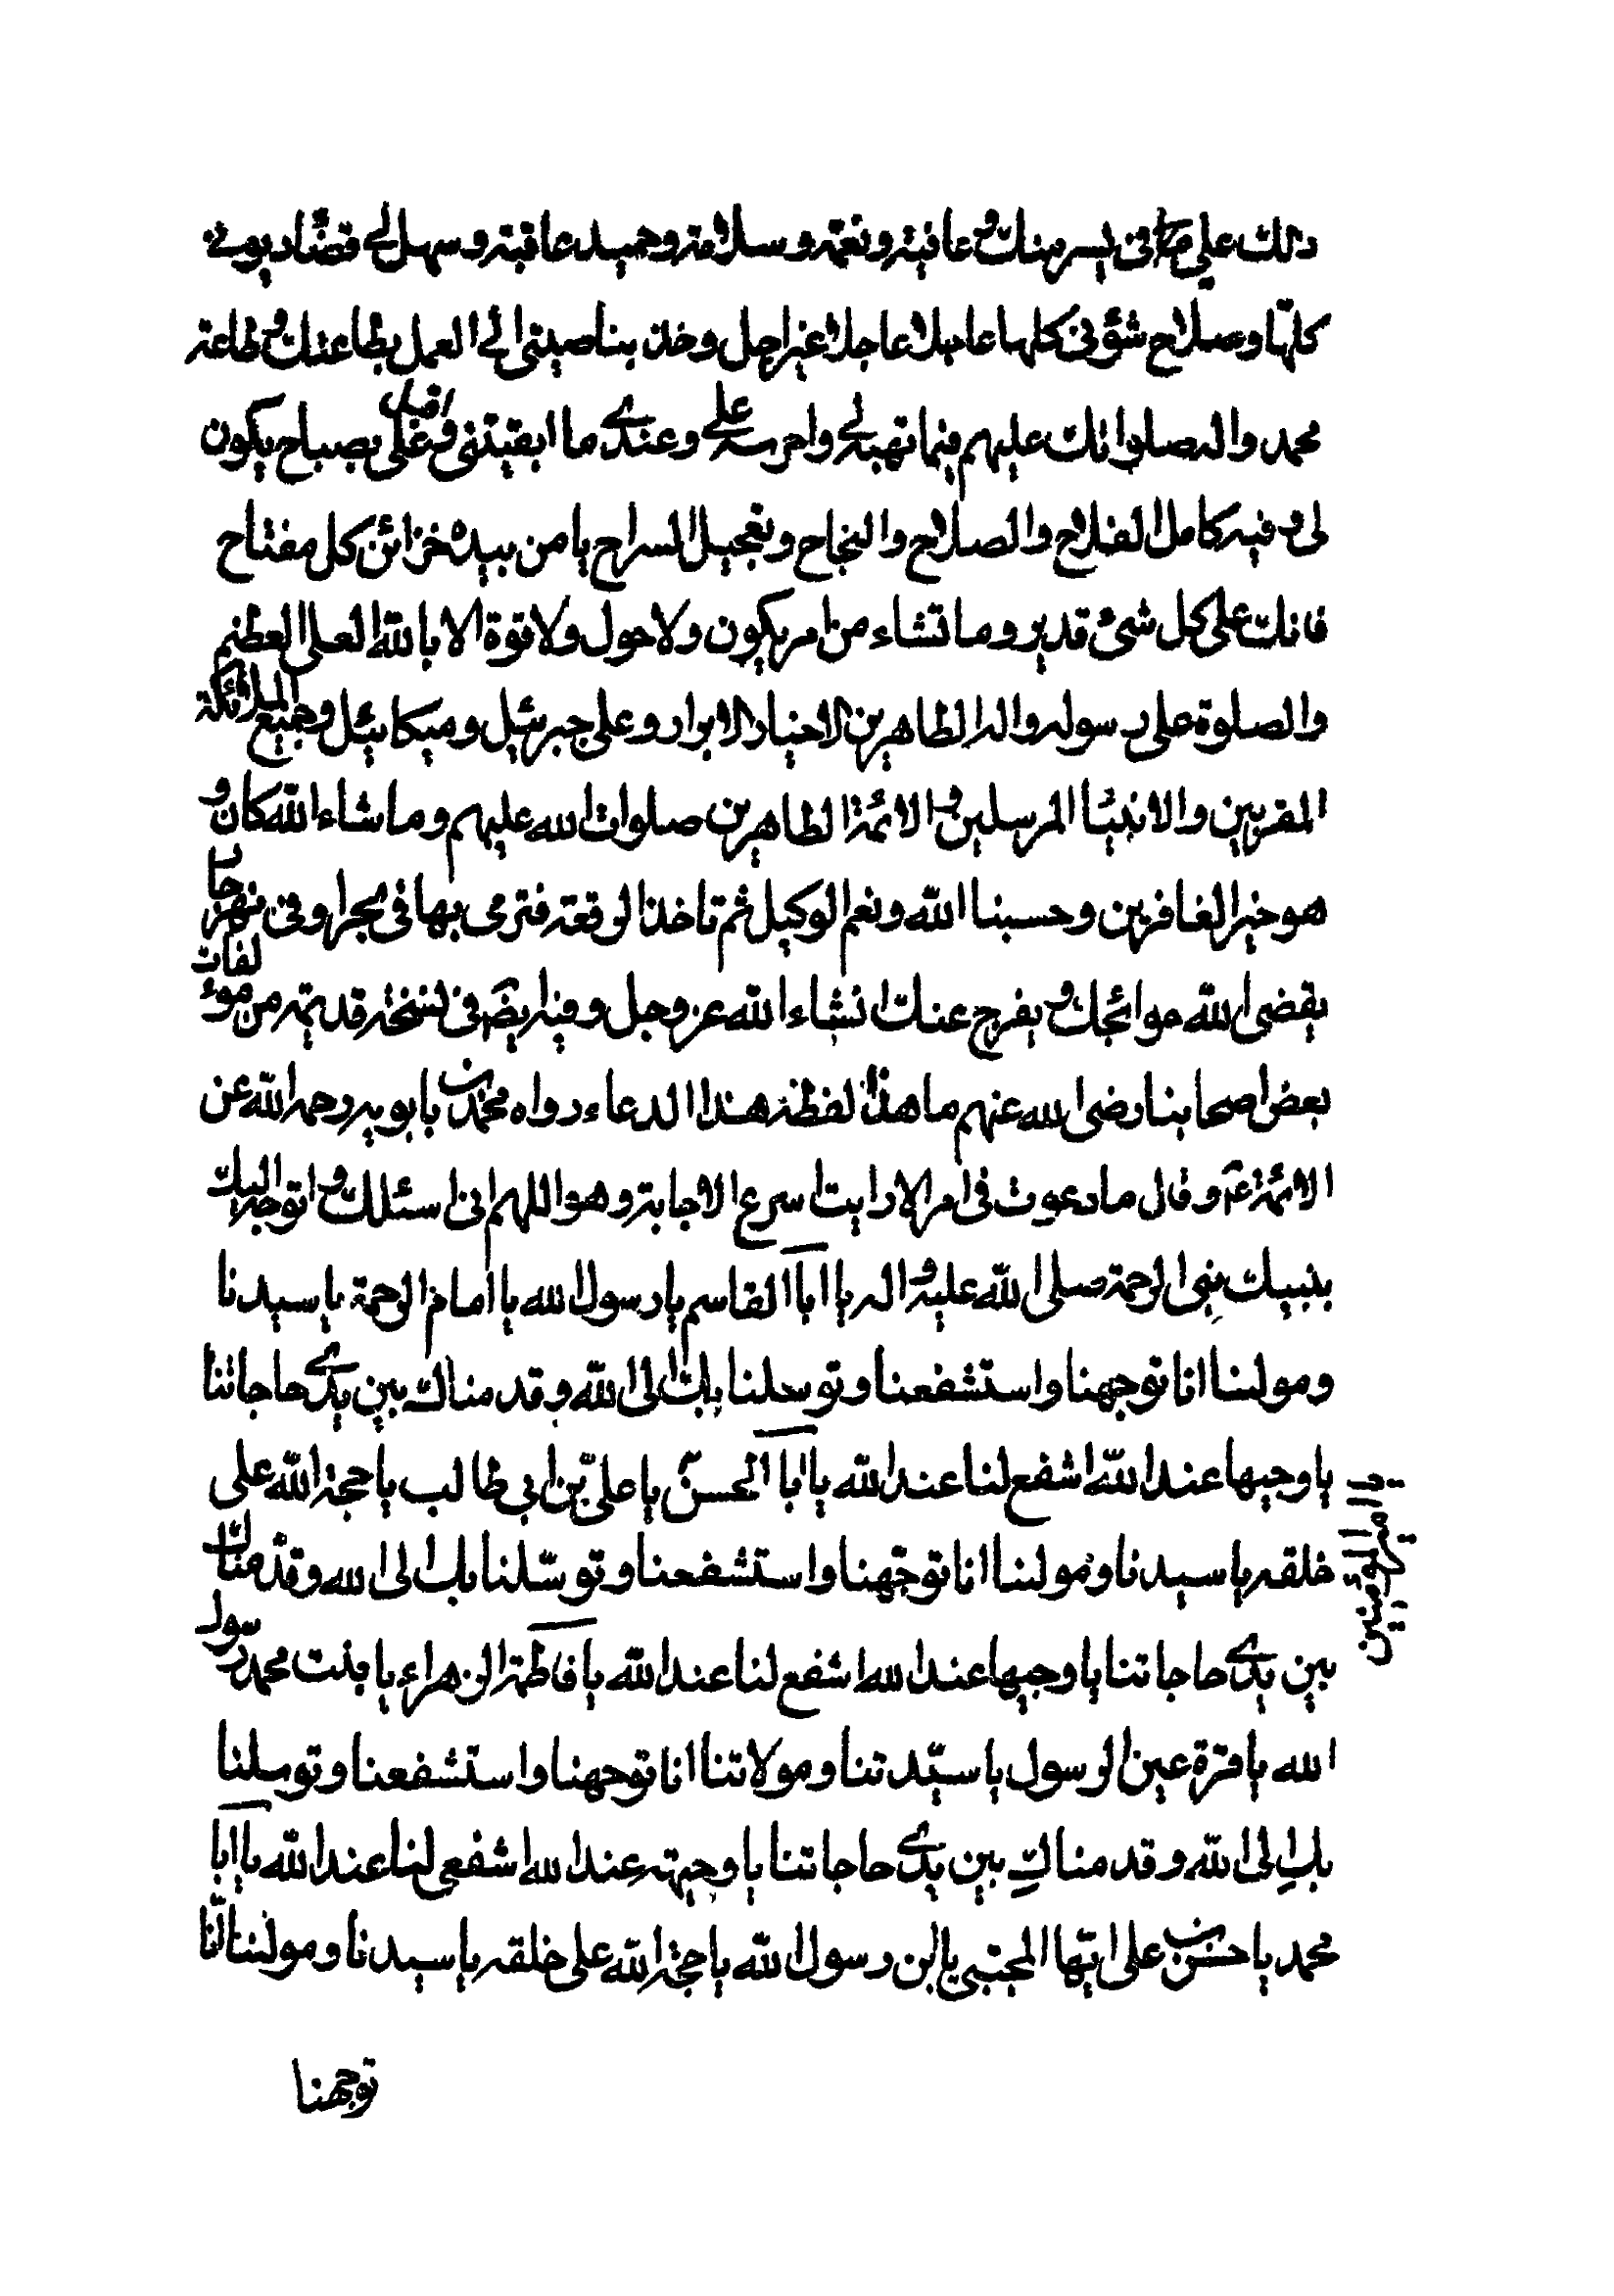 ذلك علي في يسر منك و عافية ونعمة وسلامة وحميد عاقبة وسهل لي قضاء ديوني
كلها وصلاح شؤني كلها عاجلا عاجلا غير اجل وخذ بناصيتي الى العمل بطاعتك و طاعة
محمد واله صلواتك عليهم فيما تهبه لي واحرسه علي وعندي ما ابقيتني و اقبل على بصباح يكون
لى و فيه كامل الفلاح والصلاح والنجاح وتعجيل السراح يا من بيده خزائن كل مفتاح
فانك على كل شئ قدير وما تشاء من امر يكون ولا حول ولا قوة الا بالله العلى العظيم
والصلوة على رسوله واله الطاهرين الاخيار الابرار وعلى جبرئيل وميكائيل وجميع الملائكة
المقربين والانبيا المرسلين و الائمة الطاهرين صلوات الله عليهم وما شاء الله كان و
هو خير الغافرين وحسبنا الله ونعم الوكيل ثم تاخذ الرقعة فترمى بها في بحر او في نهر جار
يقضى الله حوائجك و يفرج عنك انشاء الله عز وجل وفيه ايضا في نسخة قديمة من مؤلفات
بعض اصحابنا رضى الله عنهم ما هذا لفظه هذا الدعاء رواه محمد بن بابويه رحمه الله عن
الائمة ع وقال ما دعوت في امر الا رايت سرع الاجابة وهو اللهم انى اسئلك و اتوجه اليك
بنبيك نبى الرحمة صلى الله عليه و اله يا ابا القاسم يا رسول الله يا امام الرحمة يا سيدنا
ومولينا انا توجهنا واستشفعنا وتوسلنا بك الى الله وقدمناك بين يدي حاجاتنا
يا وجيها عند الله اشفع لنا عند الله يا ابا الحسن يا على بن ابي طالب يا حجة الله على
يا امير المؤمنين
خلقه يا سيدنا ومولينا انا توجهنا واستشفعنا وتوسلنا بك الى الله وقدمناك
بين يدي حاجاتنا يا وجيها عند الله اشفع لنا عند الله يا فاطمة الزهراء يا بنت محمد رسول
الله يا قرة عين الرسول يا سيدتنا ومولاتنا انا توجهنا واستشفعنا وتوسلنا
بك الى الله وقدمناك بين يدي حاجاتنا يا وجيهة عند الله اشفعى لنا عند الله يا ابا
محمد يا حسن بن على ايها المجتبى يا ابن رسول الله يا حجة الله على خلقه يا سيدنا ومولينا انا
توجهنا